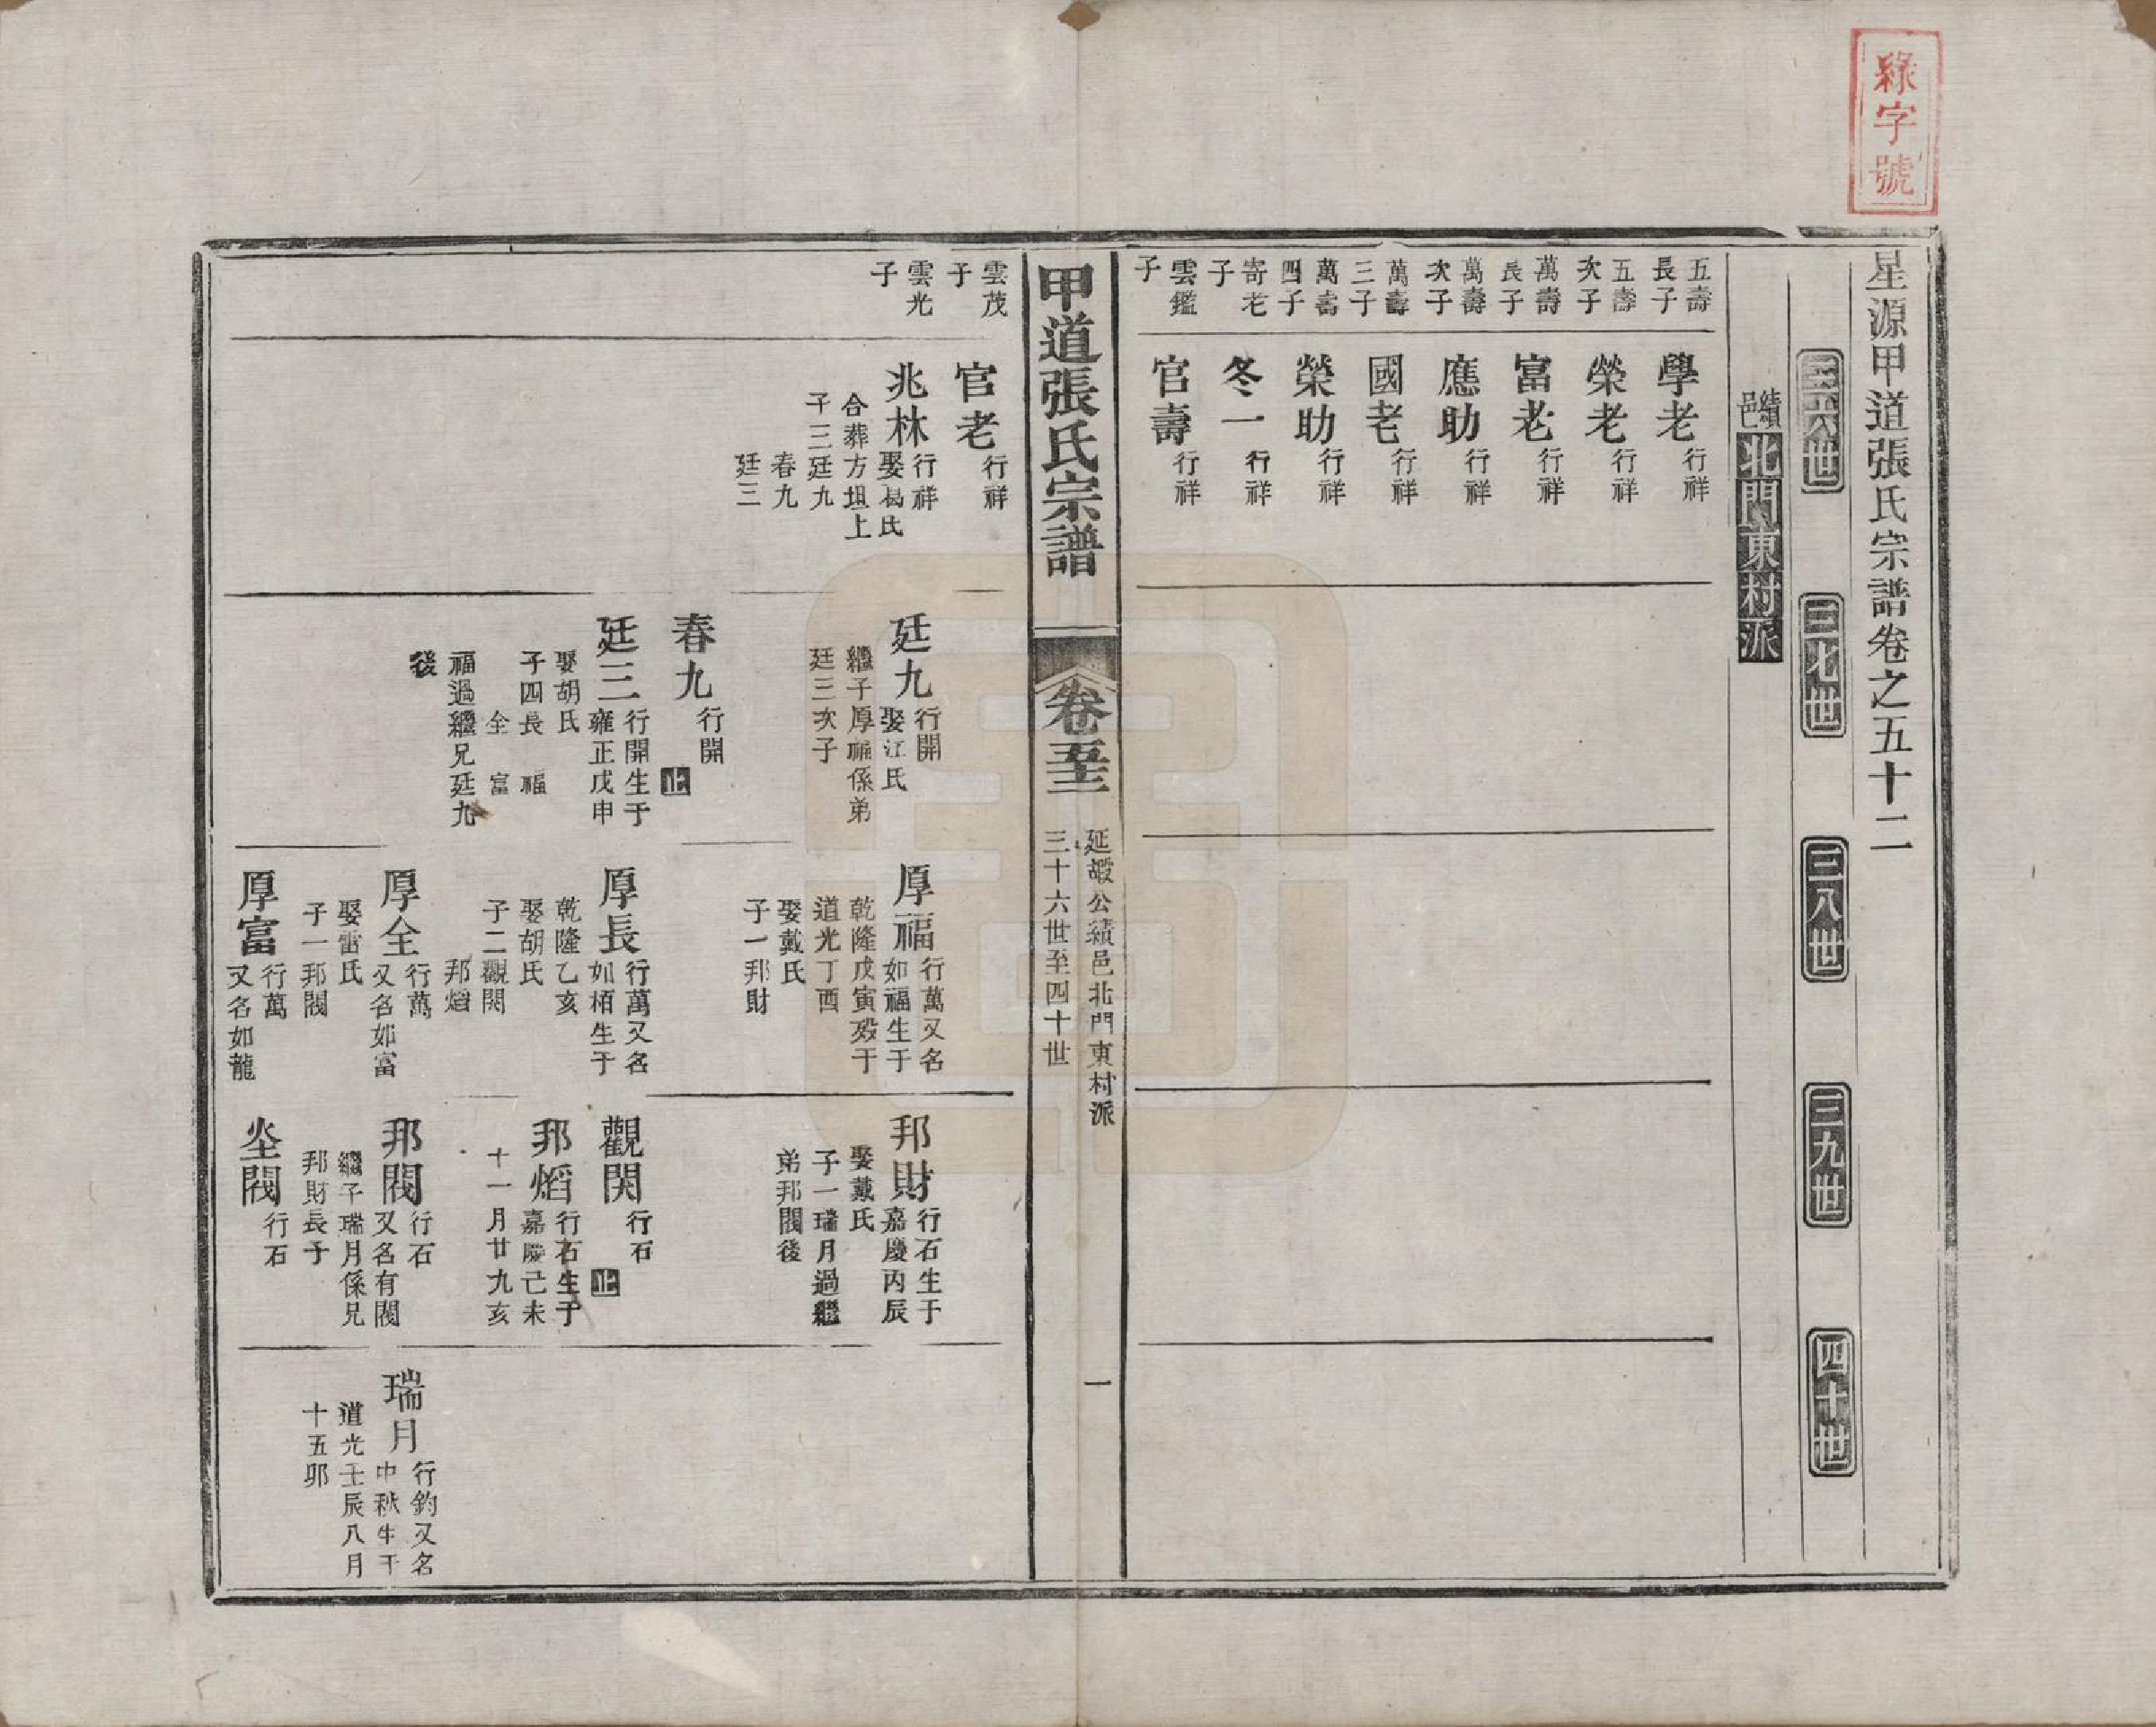 綠字號
星源甲道張氏宗譜卷之五十二
三六世
三七世
三八世
三九世
四十世
績邑北門東村派
五壽長子
學老行祥
五壽次子
榮老行祥
萬壽長子
富老行祥
萬壽次子
應助行祥
萬壽三子
國老行祥
萬壽四子
榮助行祥
寄老子
冬一行祥
雲鑑子
官壽行祥
甲道張氏宗譜
卷五十二
延嘏公績邑北門東村派
三十六世至四十世
一
雲茂子
官老行祥
雲光子
兆林行祥
娶葛氏
合葬方坦上
子三廷九
春九
廷三
廷九行開
娶江氏
繼子厚福係弟
廷三次子
春九行開
止
廷三行開生于
雍正戊申
娶胡氏
子四長 福
全 富
福過繼兄廷九
後
厚福行萬又名
如福生于
乾隆戊寅歿于
道光丁酉
娶戴氏
子一邦財
厚長行萬又名
如栢生于
乾隆乙亥
娶胡氏
子二觀関
邦熖
厚全行萬
又名如富
娶雷氏
子一邦閥
厚富行萬
又名如龍
邦財行石生于
嘉慶丙辰
娶戴氏
子一瑞月過繼
弟邦閥後
觀関行石
止
邦熖行石生于
嘉慶己未
十一月廿九亥
邦閥行石
又名有閥
繼子瑞月係兄
邦財長子
閥行石
瑞月行鈞又名
中秋生于
道光壬辰八月
十五卯